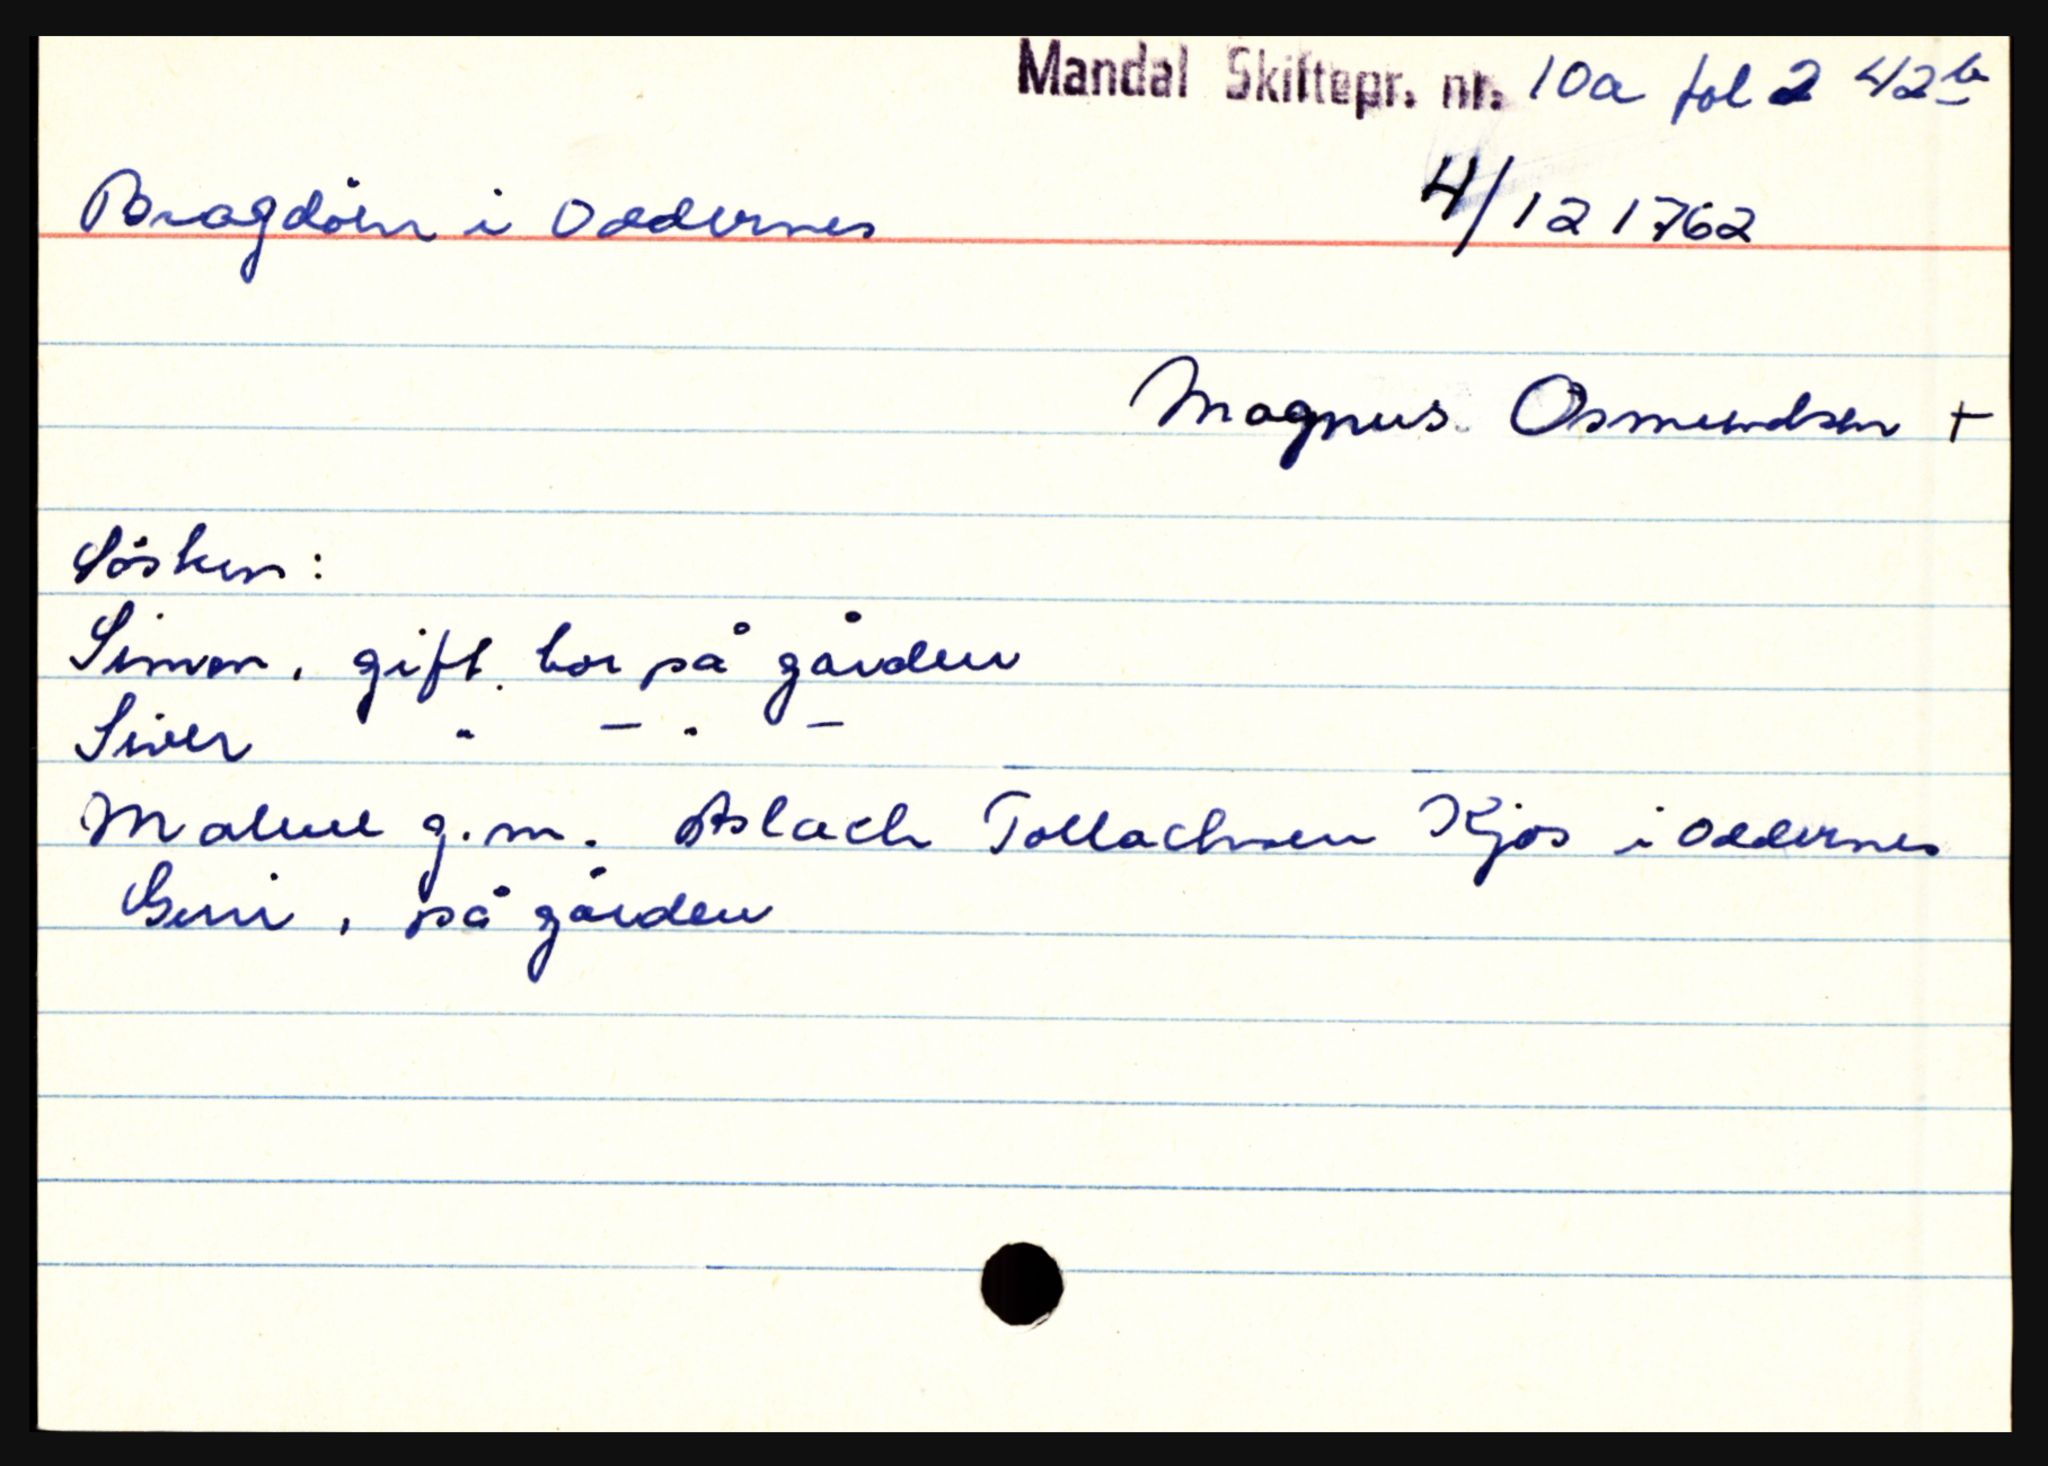 Mandal Skiftepr. nr. 10a fol 242b
Bragdöen i Oddernes 4/12 1762
Magnus Osmundsen +
Sösken:
Simon, gift, bor på gården
Siver " - " -
Malene g.m. Aslach Tollachsen Kjos i Oddernes
Guri, på gården